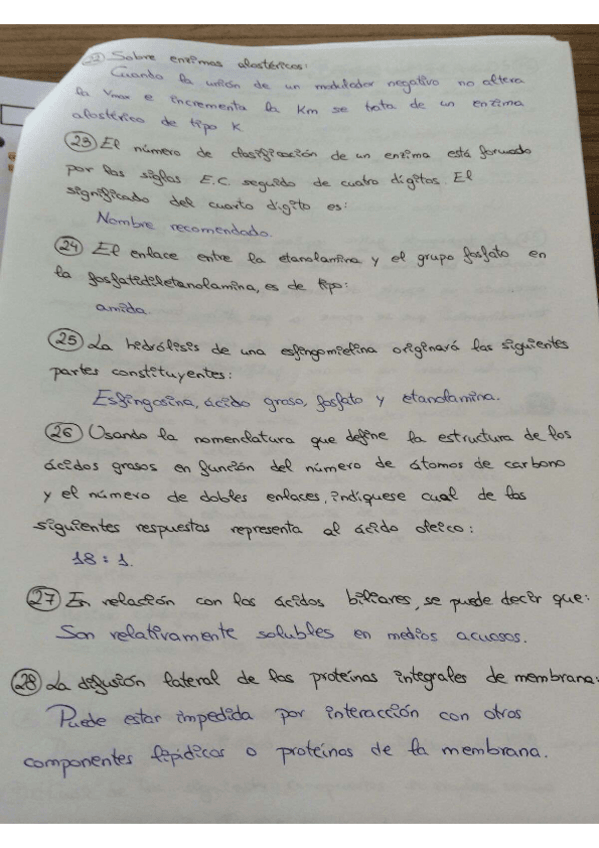 22) Sobre enzimas alostéricos:
Cuando la unión de un modulador negativo no altera
la Vmax e incrementa la Km se trata de un enzima
alostérico de tipo K
23) El número de clasificación de un enzima está formado
por las siglas E.C. seguido de cuatro dígitos. El
significado del cuarto dígito es:
Nombre recomendado.
24) El enlace entre la etanolamina y el grupo fosfato en
la fosfatidiletanolamina, es de tipo:
amida.
25) La hidrólisis de una esfingomielina originará las siguientes
partes constituyentes:
Esfingosina, ácido graso, fosfato y etanolamina.
26) Usando la nomenclatura que define la estructura de los
ácidos grasos en función del número de átomos de carbono
y el número de dobles enlaces, indíquese cual de las
siguientes respuestas representa al ácido oleico:
18:1.
27) En relación con los ácidos biliares, se puede decir que:
Son relativamente solubles en medios acuosos.
28) La difusión lateral de las proteínas integrales de membrana:
Puede estar impedida por interacción con otros
componentes lipídicos o proteínas de la membrana.